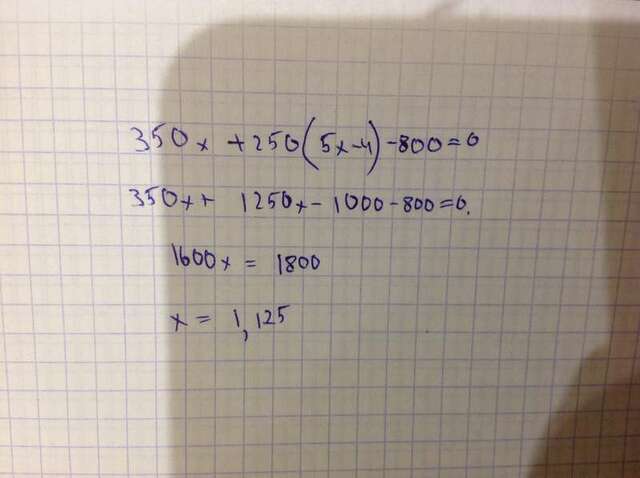 350x + 250(5x-4) - 800 = 0
350x + 1250x - 1000 - 800 = 0.
1600x = 1800
x = 1,125